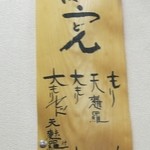 うどん
もり
天麩羅
大もり
大もり
天麩羅